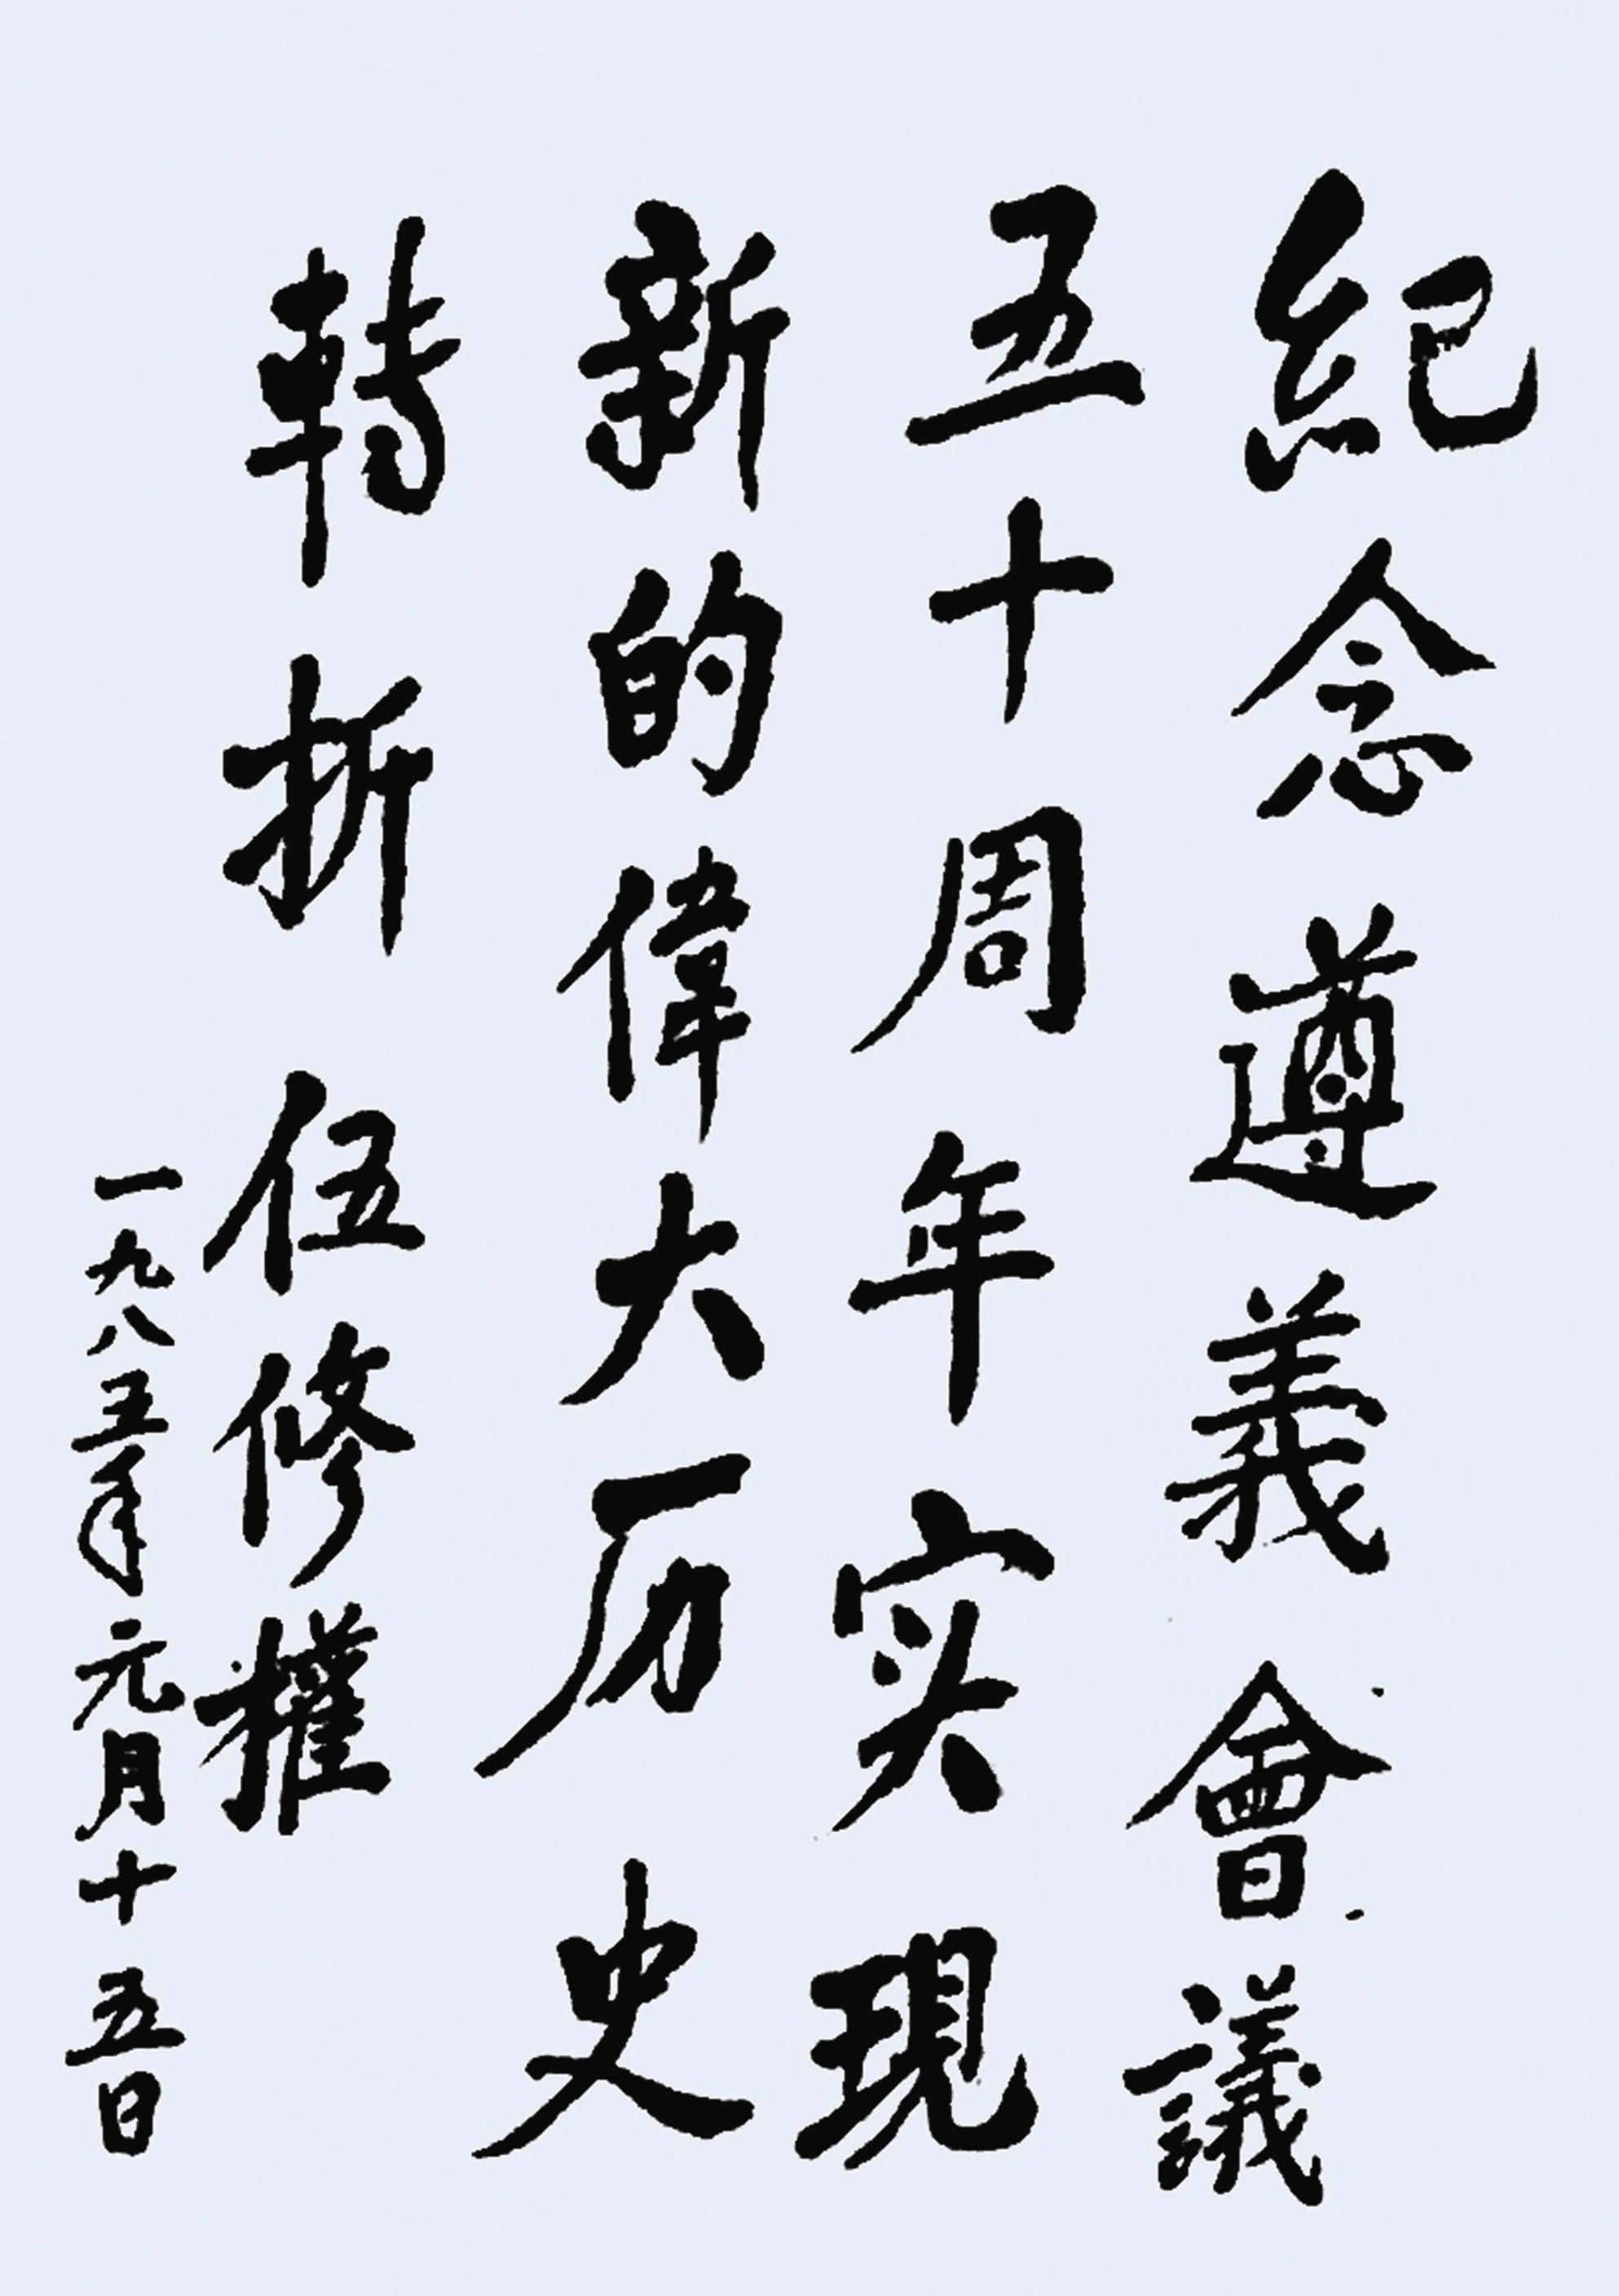 紀念遵義會議
五十周年实現
新的偉大历史
轉折 伍修權
一九八五年元月十五日